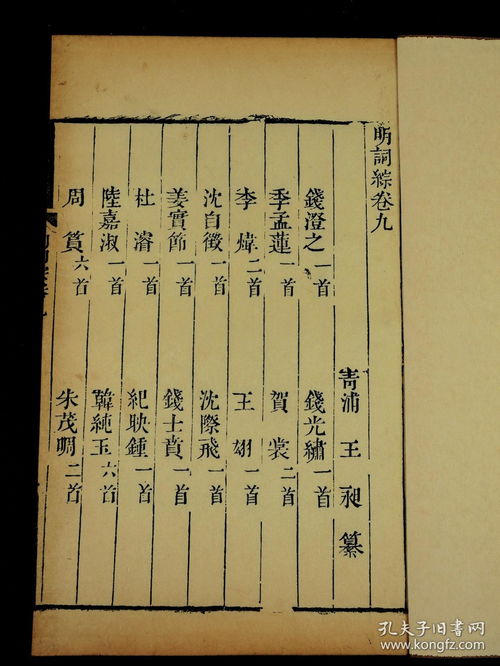 明詞綜卷九
青浦 王 昶 纂
錢澄之一首 錢光繡一首
季孟蓮一首 賀 裳二首
李 煒二首 王 翃一首
沈自徵一首 沈際飛一首
姜實節一首 錢士賁一首
杜 濬一首 紀映鍾一首
陸嘉淑一首 韓純玉六首
周 篔六首 朱茂晭二首
孔夫子旧书网
www.kongfz.com